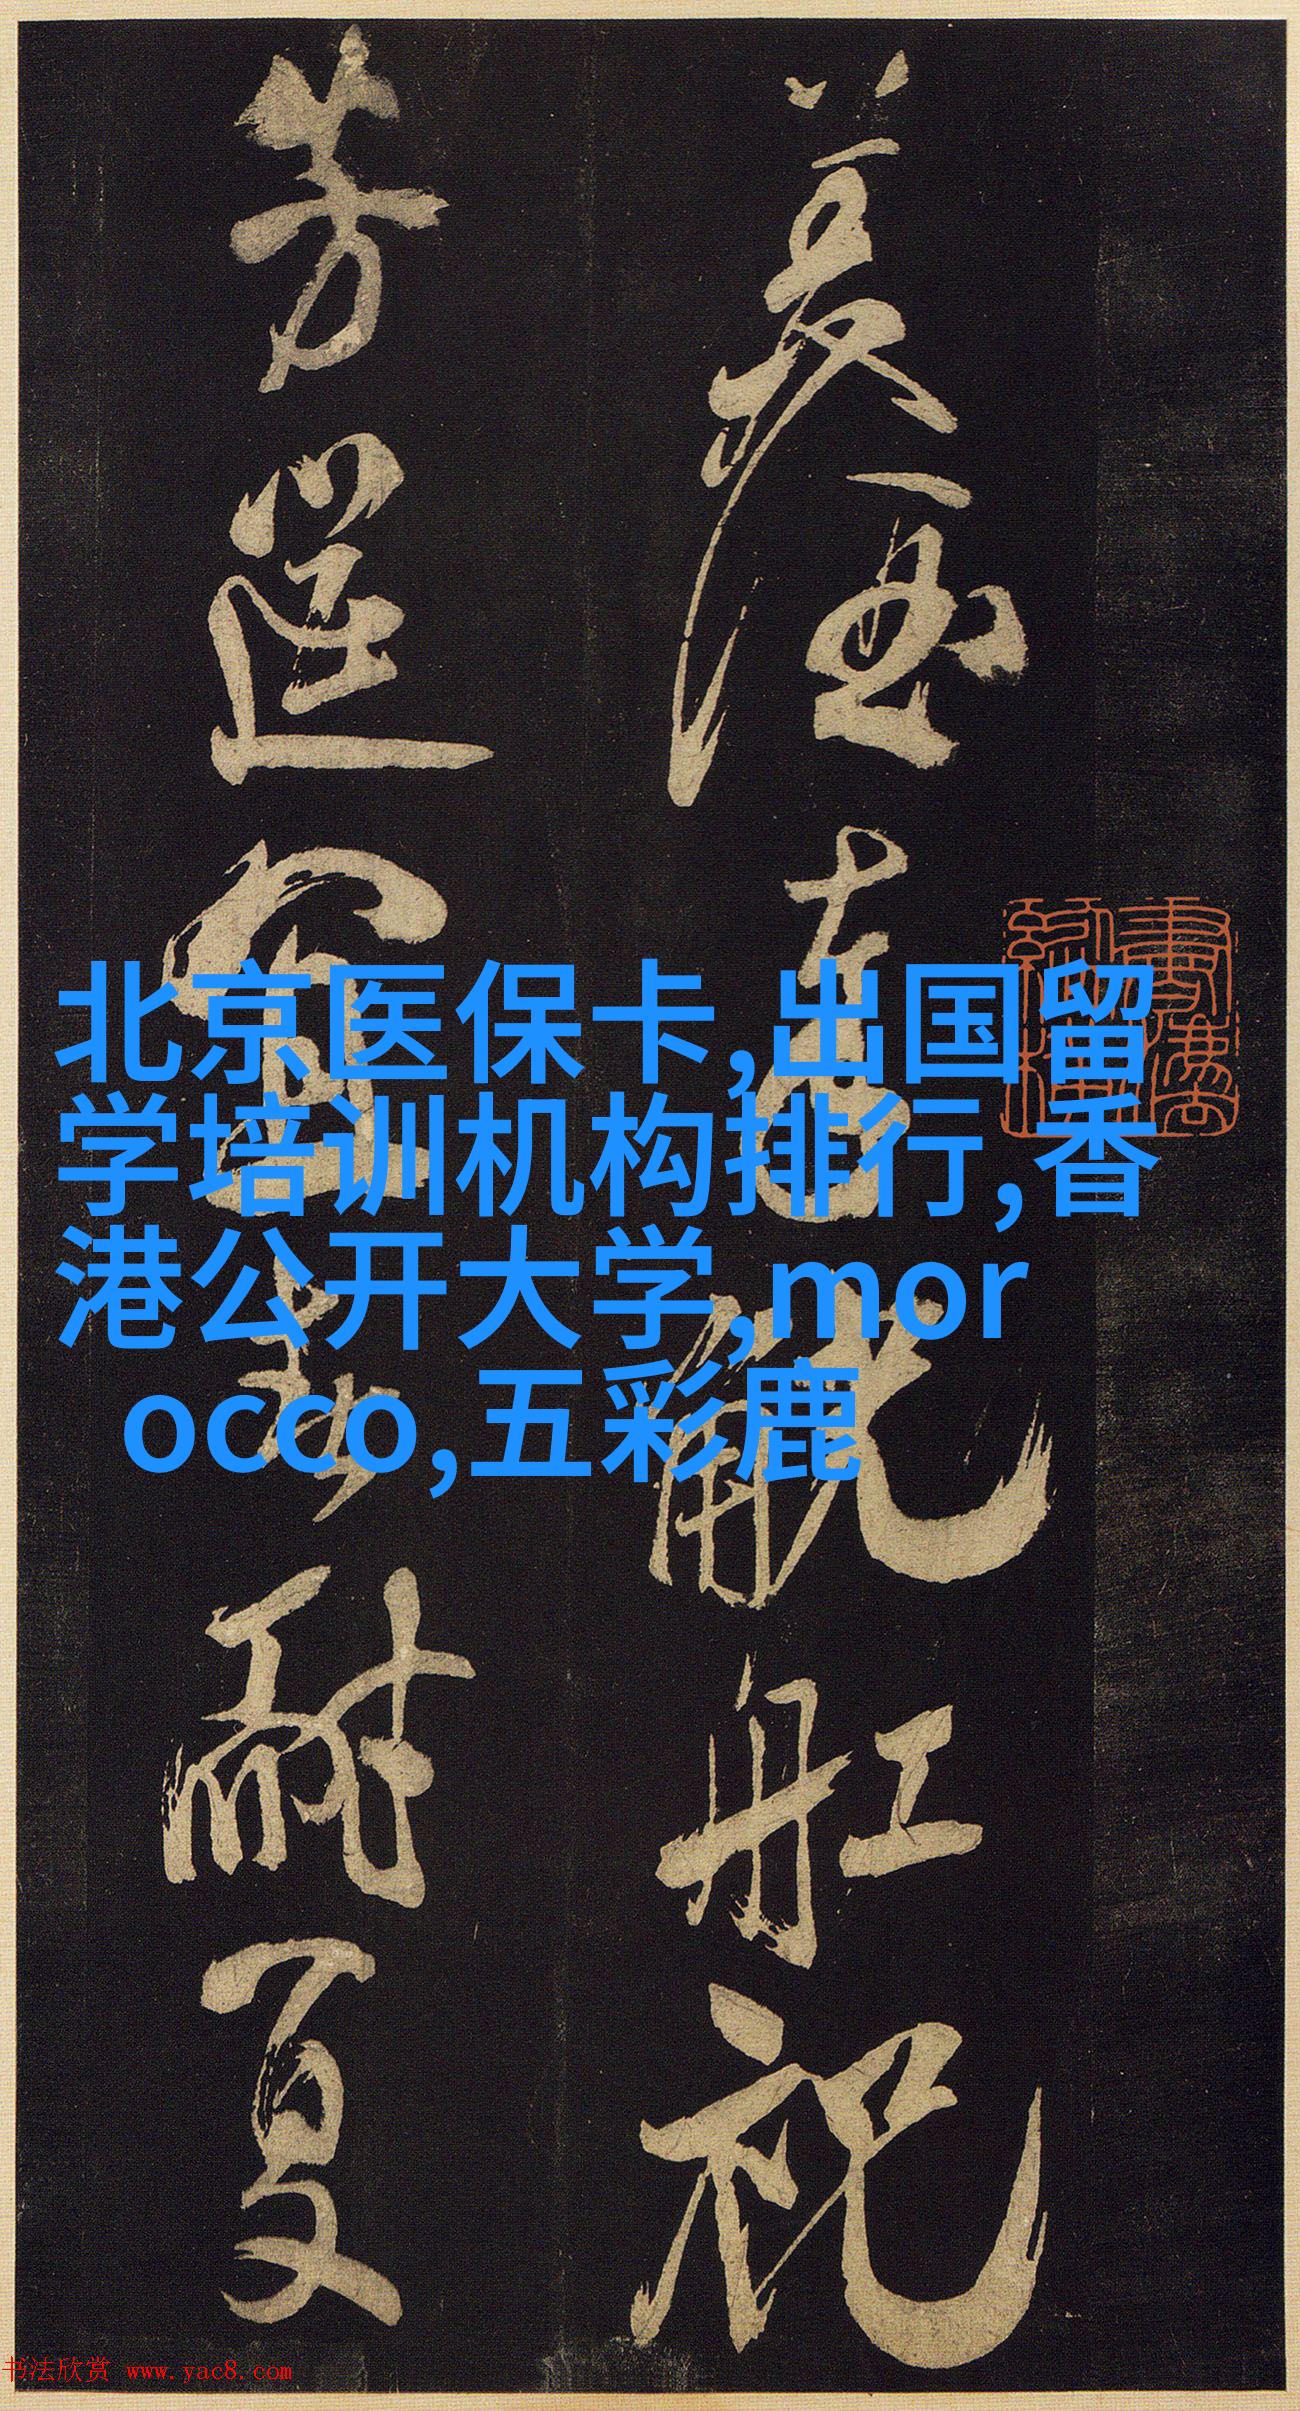 觥舡祝
芳筵
耐夏
北京医保卡,出国留
学培训机构排行,香
港公开大学,mor
occo,五彩鹿
书法欣赏 www.yac8.com